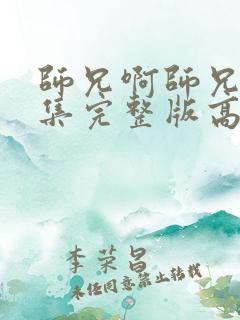 師兄啊師兄
集完整版高
李荣昌
未经同意禁止转载